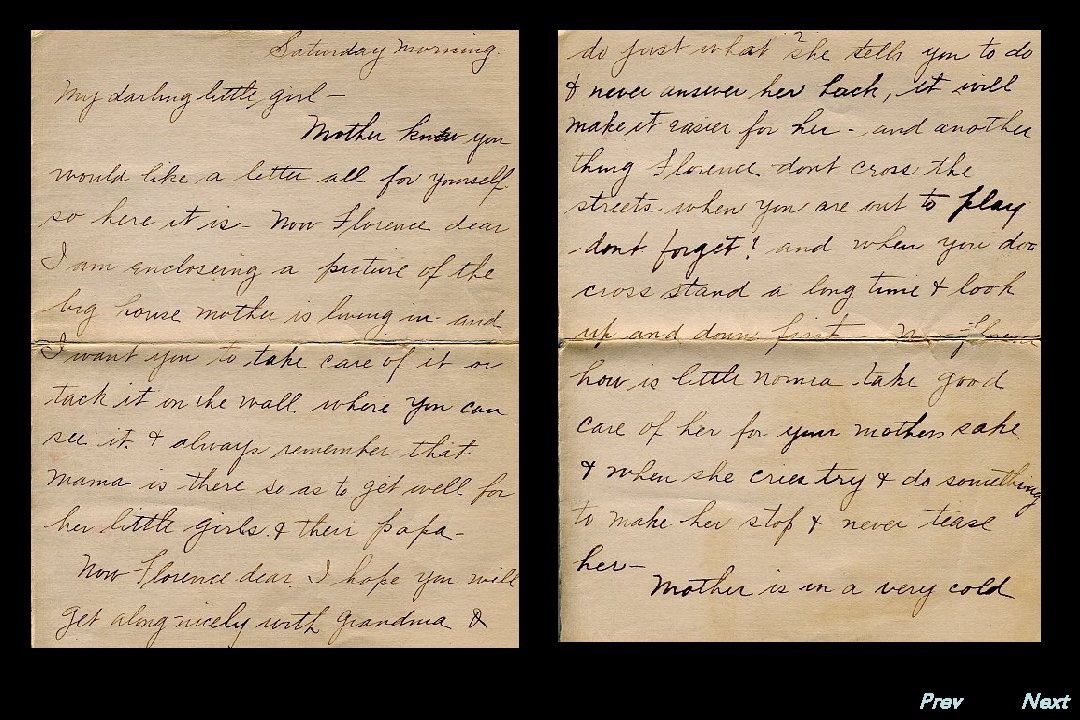 Saturday Morning.
My darling little girl -
Mother knew you
would like a letter all for yourself.
so here it is - Now Florence dear
I am enclosing a picture of the
big house mother is living in - and
I want you to take care of it or
tack it on the wall where you can
see it & always remember that
Mama is there so as to get well for
her little girls & their papa -
Now Florence dear I hope you will
get along nicely with Grandma &
do just what she tells you to do
& never answer her back, it will
make it easier for her - and another
thing Florence dont cross the
streets when you are out to play
dont forget! and when you do
cross stand a long time & look
up and down first
how is little Norma take good
care of her for your mothers sake
& when she cries try & do something
to make her stop & never tease
her -
Mother is in a very cold
Prev Next